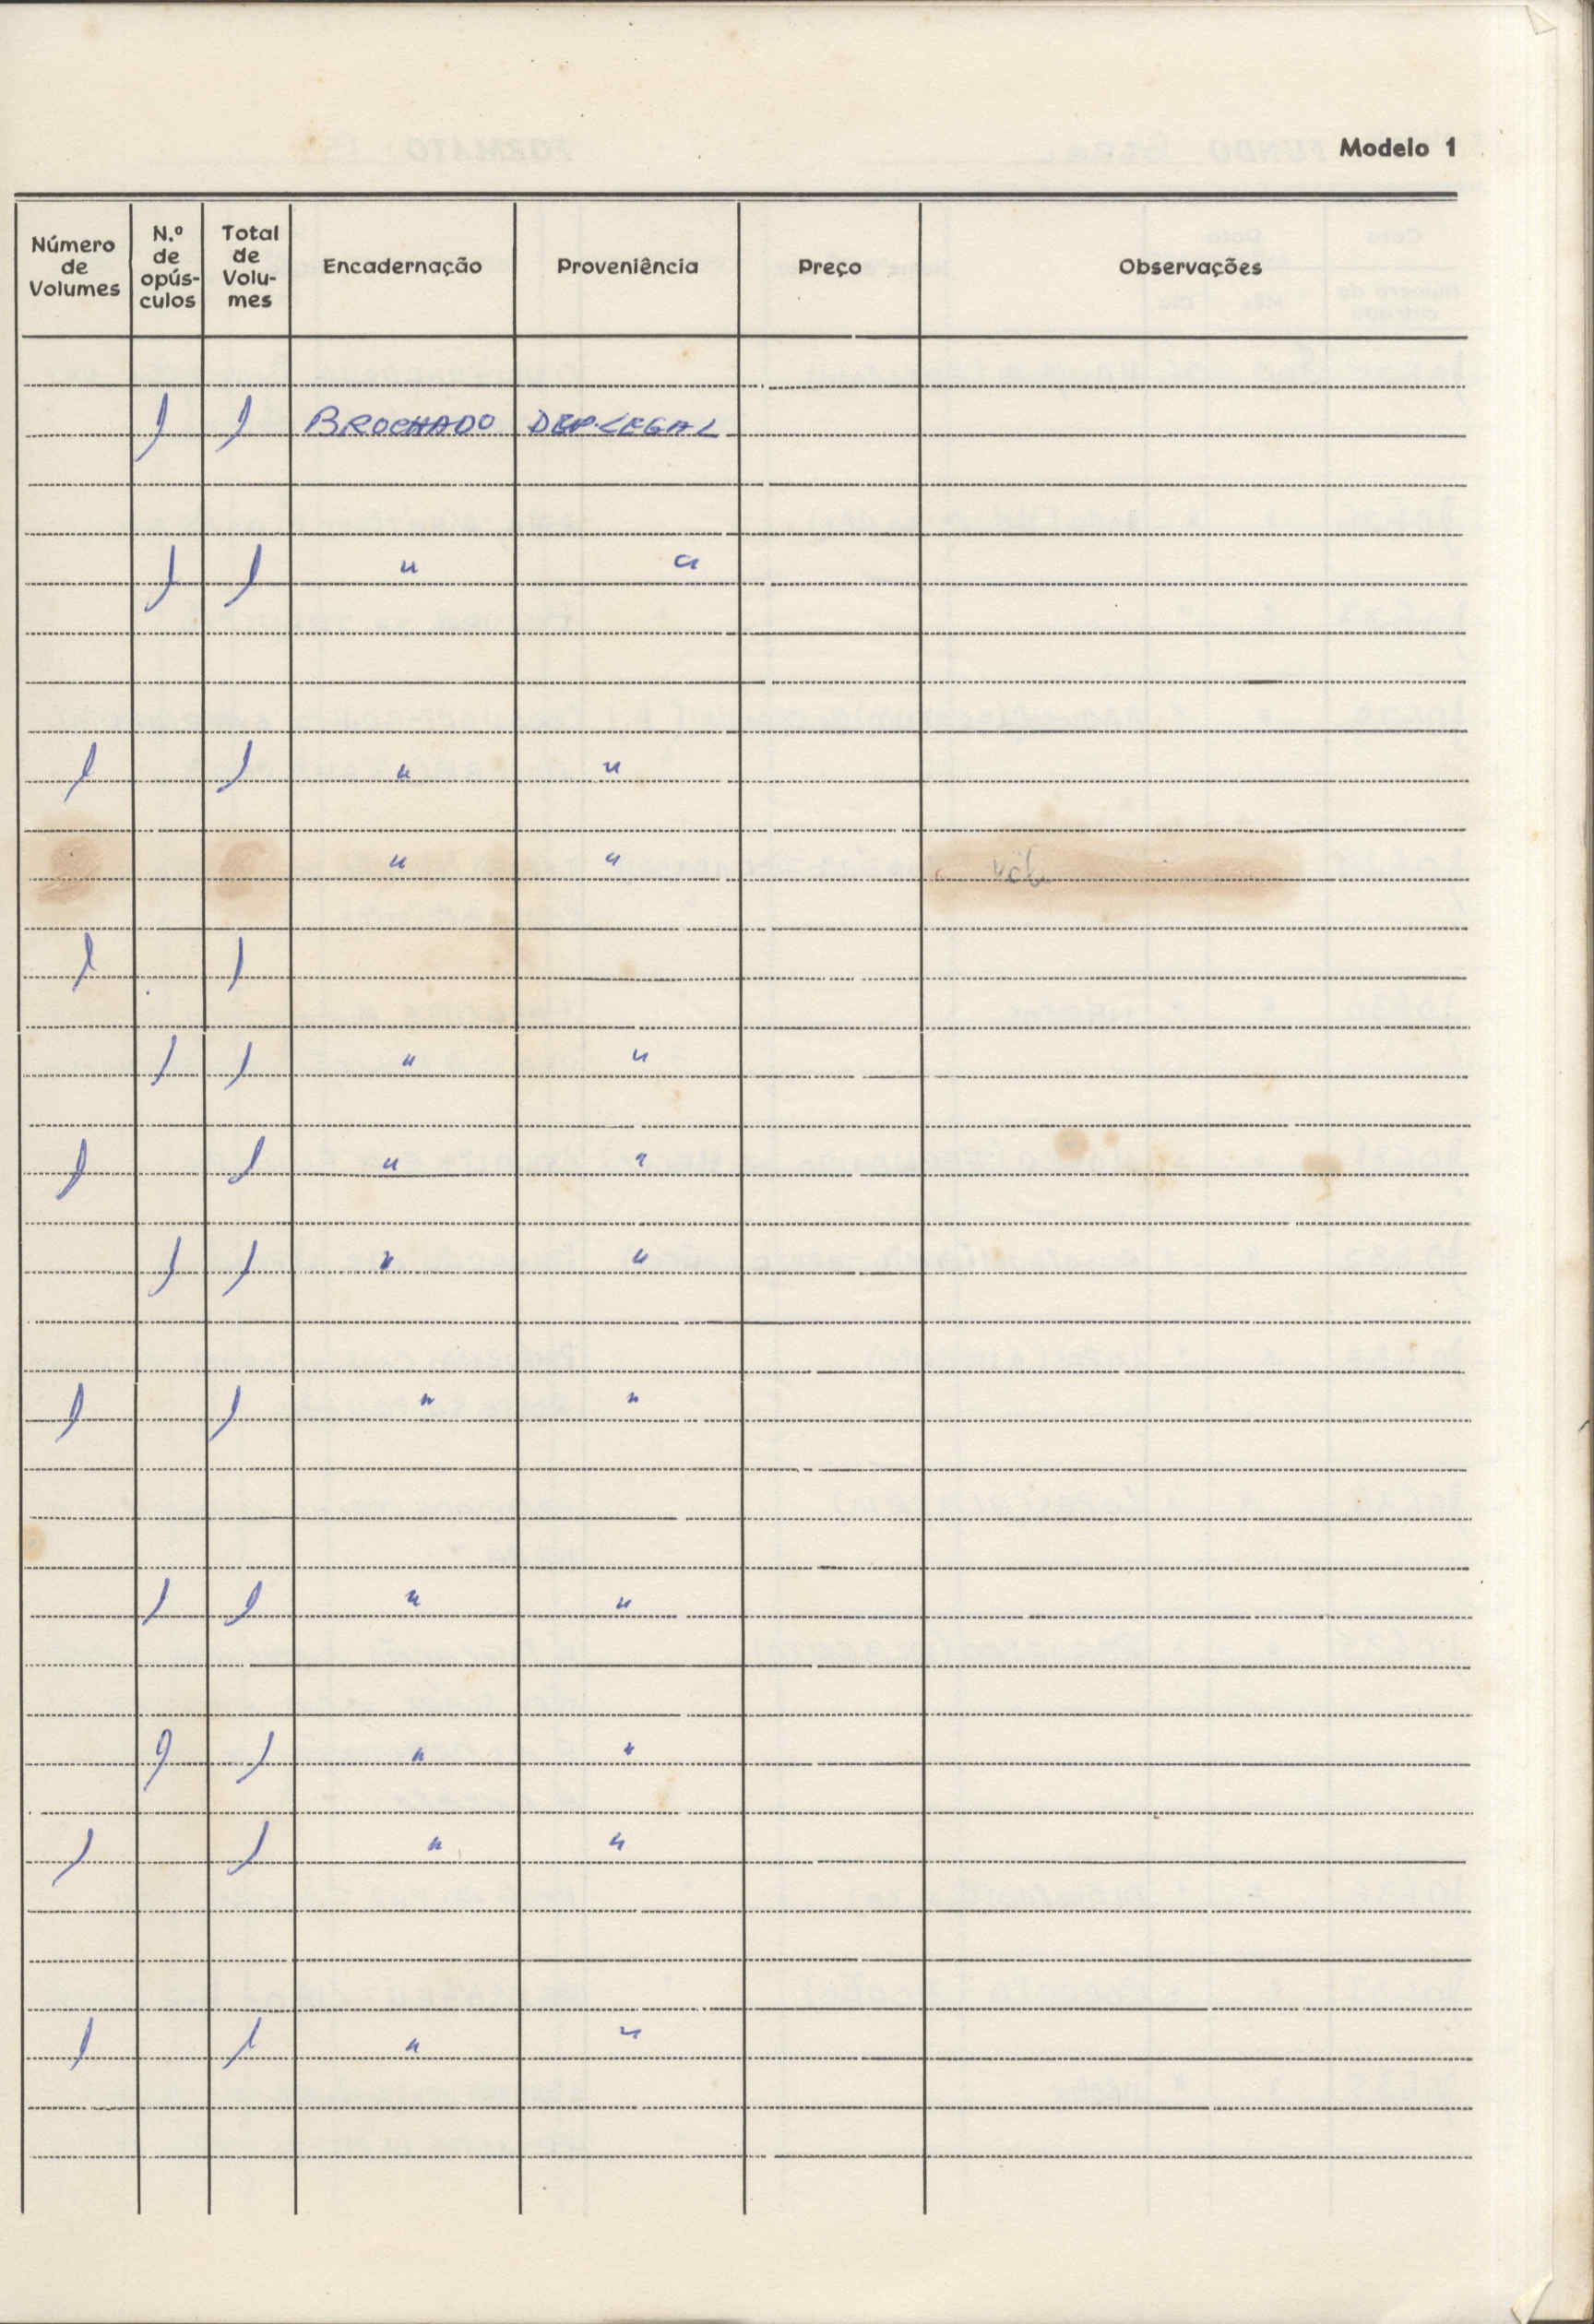 Modelo 1
Número de Volumes | N.º de opús-culos | Total de Volu-mes | Encadernação | Proveniência | Preço | Observações
1 1 BROCHADO DEP. LEGAL
1 1 " "
1 1 " "
" "
1 1
1 1 " "
1 1 " "
1 1 " "
1 1 " "
1 1 " "
1 1 " "
1 1 " "
1 1 " "